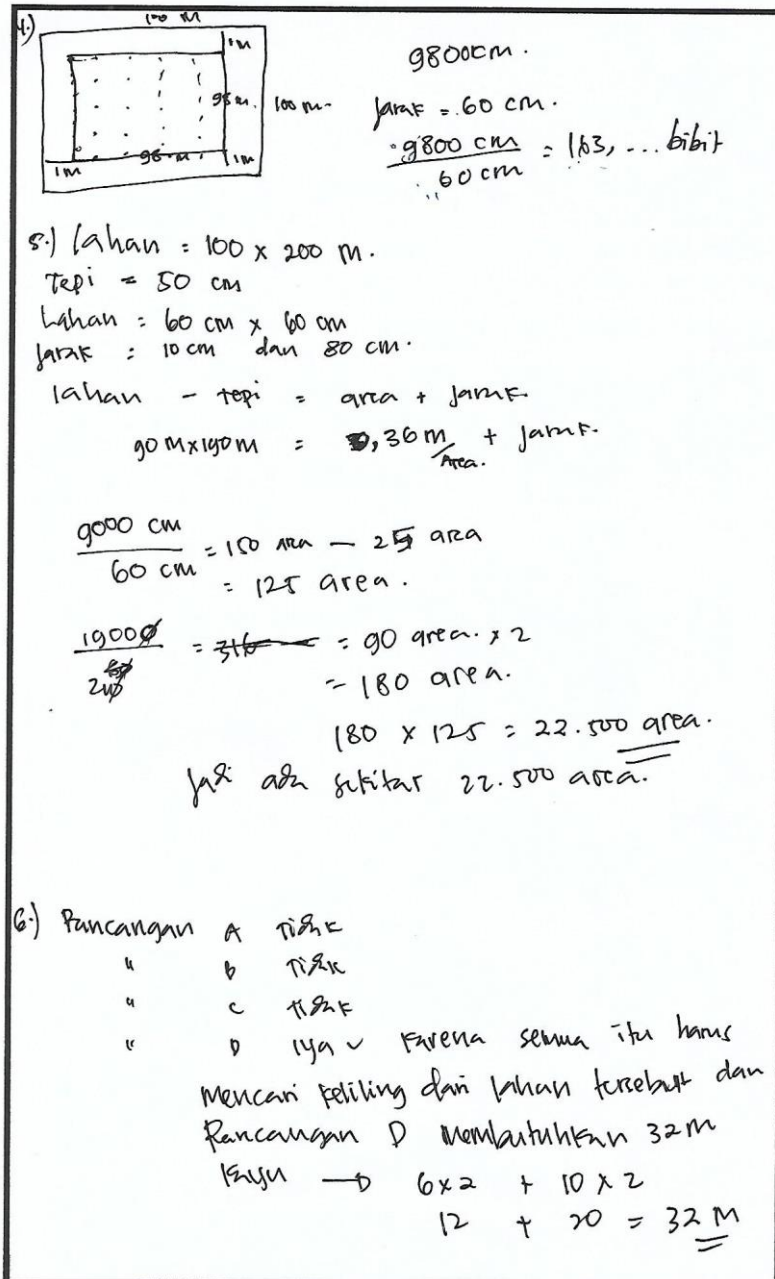 4.)
100 M
1m
98 m.
100 m.
98 m
1m
1m
9800cm.
Jarak = 60 cm.
9800 cm / 60 cm = 163, ... bibit
5.) Lahan = 100 x 200 m.
Tepi = 50 cm
Lahan = 60 cm x 60 cm
Jarak = 10 cm dan 80 cm.
lahan - tepi = area + Jarak
90 M x 190 m = 0,36 m / Area. + Jarak.
9000 cm / 60 cm = 150 area - 25 area
= 125 area.
19000 / = 316 = 90 area. x 2
= 180 area.
180 x 125 = 22.500 area.
Jadi ada sekitar 22.500 area.
6.) Rancangan A Tidak
" B Tidak
" C tidak
" D iya ✓ karena semua itu harus
Mencari keliling dari lahan tersebut dan
Rancangan D Membutuhkan 32 m
kayu → 6x2 + 10 x 2
12 + 20 = 32 M